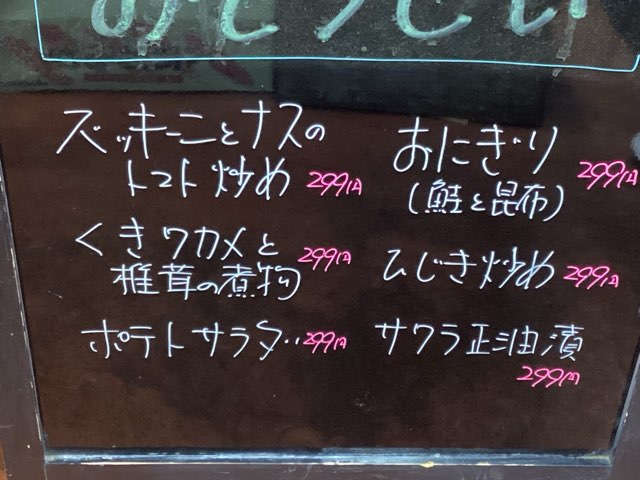 ズッキーニとナスの
トマト炒め 299円
くきワカメと
椎茸の煮物 299円
ポテトサラダ 299円
おにぎり 299円
(鮭と昆布)
ひじき炒め 299円
サワラ正油漬
299円